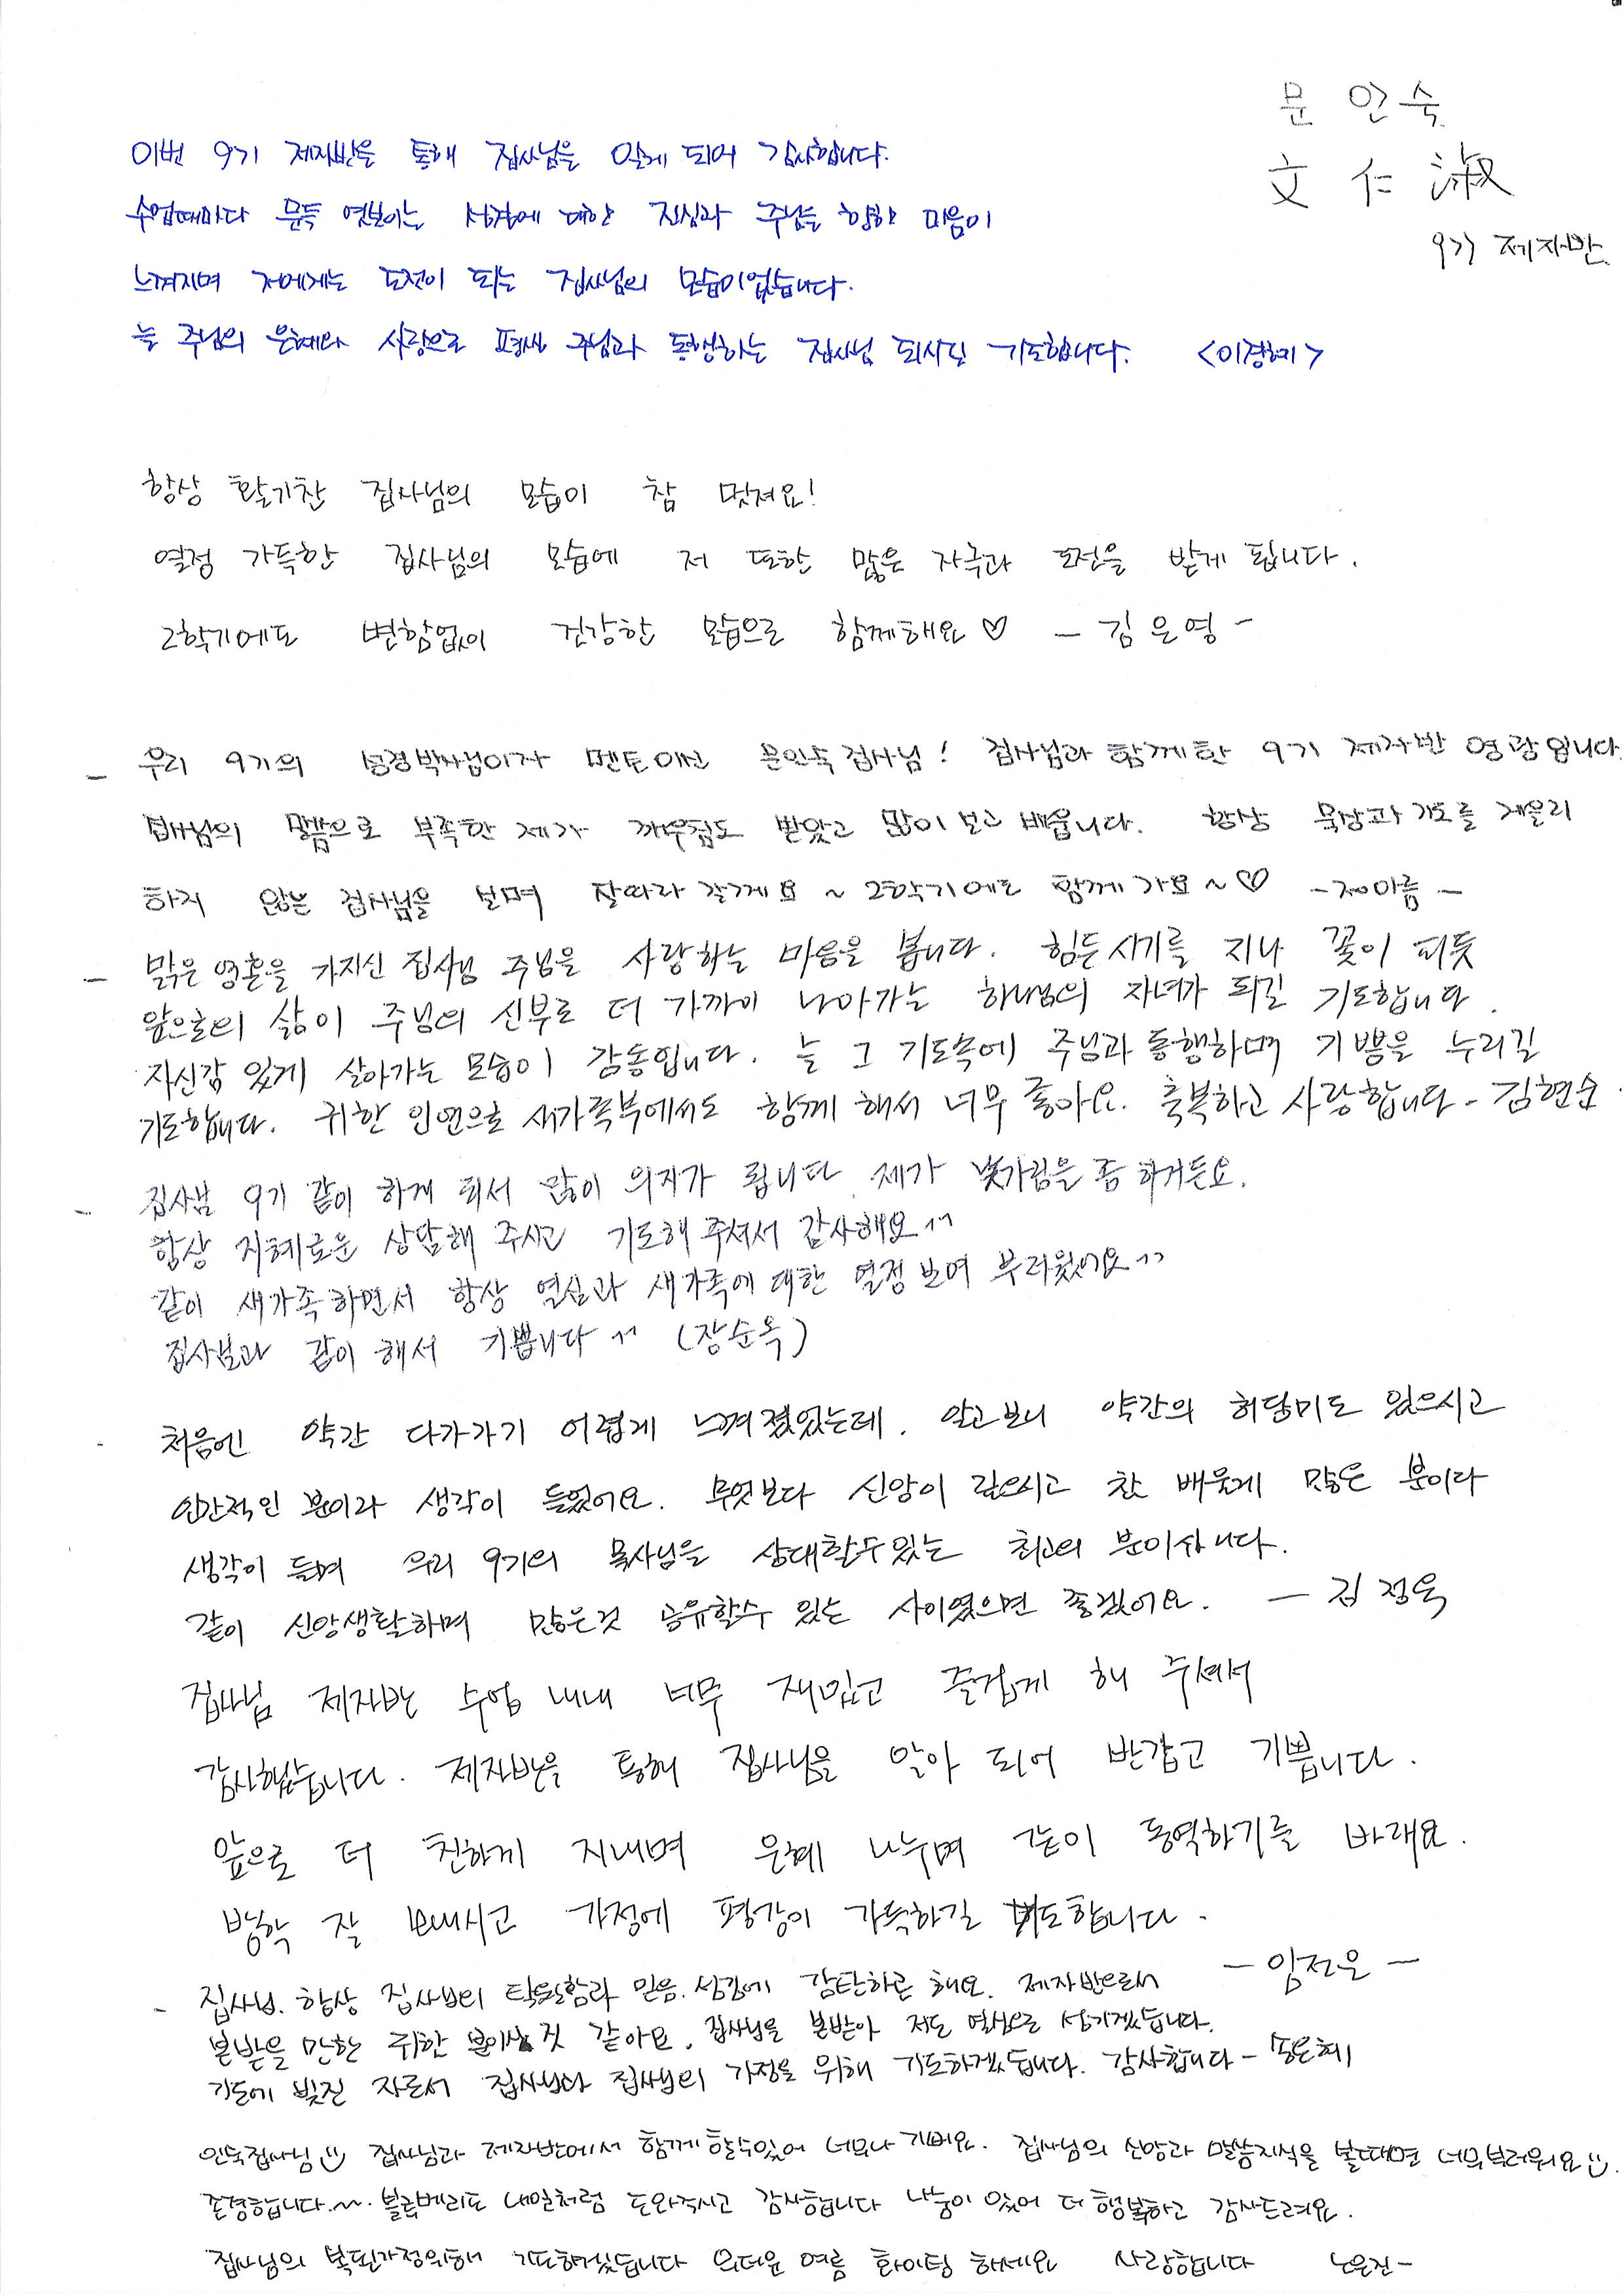 문 인 숙
文 仁 淑
9기 제자반
이번 9기 제자반을 통해 집사님을 알게 되어 감사합니다.
수업때마다 문득 엿보이는 성경에 대한 진심과 주님을 향한 마음이
느껴지며 저에게는 도전이 되는 집사님의 모습이었습니다.
늘 주님의 은혜와 사랑으로 평생 주님과 동행하는 집사님 되시길 기도합니다. <이경혜>
항상 활기찬 집사님의 모습이 참 멋져요!
열정 가득한 집사님의 모습에 저 또한 많은 자극과 도전을 받게 됩니다.
2학기에도 변함없이 건강한 모습으로 함께해요♡ - 김은영 -
- 우리 9기의 성경박사님이자 멘토이신 문인숙집사님! 집사님과 함께한 9기 제자반 영광입니다
집사님의 말씀으로 부족한 제가 깨우침도 받았고 많이 보고 배웁니다. 항상 묵상과 기도를 게을리
하지 않는 집사님을 보며 잘따라 갈게요~ 2학기에도 함께가요~♡
- 맑은 영혼을 가지신 집사님 주님을 사랑하는 마음을 봅니다. 힘든시기를 지나 꽃이 피듯
앞으로의 삶이 주님의 신부로 더 가까이 나아가는 하나님의 자녀가 되길 기도합니다.
자신감 있게 살아가는 모습이 감동입니다. 늘 그 기도속에 주님과 동행하며 기쁨을 누리길
기도합니다. 귀한 인연으로 새가족부에서도 함께 해서 너무 좋아요. 축복하고 사랑합니다 - 김현순
- 집사님 9기 같이 하게 되서 많이 의지가 됩니다 제가 낯가림을 좀 하거든요.
항상 지혜로운 상담해 주시고 기도해 주셔서 감사해요^^
같이 새가족하면서 항상 열심과 새가족에 대한 열정 보며 부러웠어요^^
집사님과 같이 해서 기쁩니다 ^^ (장순옥)
- 처음엔 약간 다가가기 어렵게 느껴졌었는데, 알고보니 약간의 허당미도 있으시고
인간적인 분이라 생각이 들었어요. 무엇보다 신앙이 깊으시고 참 배울게 많은 분이라
생각이 들며 우리 9기의 목사님을 상대할수있는 최고의 분이십니다.
같이 신앙생활하며 많은것 공유할수 있는 사이였으면 좋겠어요. - 김정옥
집사님 제자반 수업 내내 너무 재밌고 즐겁게 해 주셔서
감사했습니다. 제자반을 통해 집사님을 알아 되어 반갑고 기쁩니다.
앞으로 더 친하게 지내며 은혜 나누며 같이 동역하기를 바래요.
방학 잘 보내시고 가정에 평강이 가득하길 기도합니다.
- 임전은 -
- 집사님. 항상 집사님의 탁월함과 믿음. 섬김에 감탄하곤 해요. 제자반으로서
본받을 만한 귀한 분이신 것 같아요. 집사님을 본받아 저도 열심으로 섬기겠습니다.
기도에 빚진 자로서 집사님과 집사님의 가정을 위해 기도하겠습니다. 감사합니다 - 송은혜
인숙집사님☺ 집사님과 제자반에서 함께 할수있어 너무나 기뻐요. 집사님의 신앙과 말씀지식을 볼때면 너무부러워요☺.
존경합니다.~ 블루베리도 내일처럼 도와주시고 감사합니다 나눔이 있어 더 행복하고 감사드려요.
집사님의 복된가정위해 기도하겠습니다 무더운 여름 화이팅 하세요 사랑합니다 노은진-